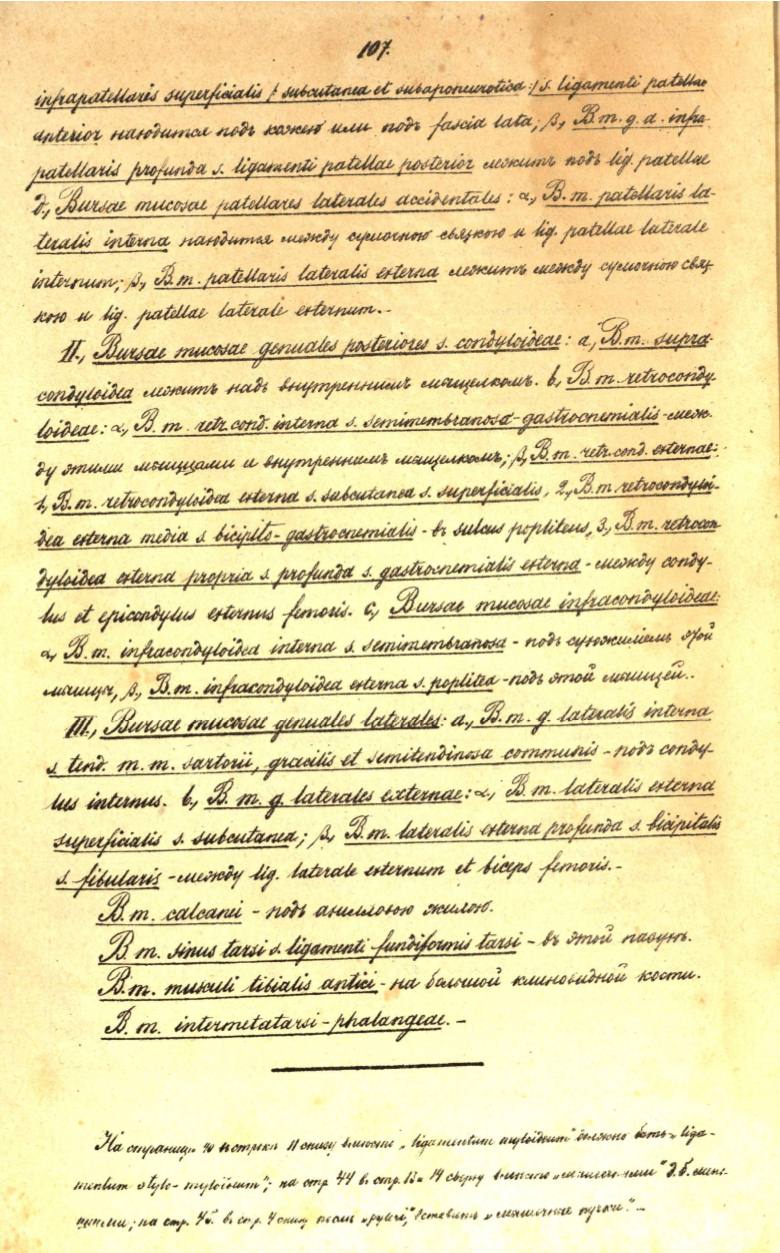 107.
infrapatellaris superficialis /: subcutanea et subaponeurotica :/ s. ligamenti patellae
anterior находится подъ кожею или подъ fascia lata; β, B. m. g. a. infra-
patellaris profunda s. ligamenti patellae posterior лежитъ подъ lig. patellae
d, Bursae mucosae patellares laterales accidentales: α, B. m. patellaris la-
teralis interna находится между сумочною связкою и lig. patellae laterale
internum; β, B. m. patellaris lateralis externa лежитъ между сумочною связ-
кою и lig. patellae laterale externum.-
II., Bursae mucosae genuales posteriores s. condyloideae: a, B. m. supra-
condyloidea лежитъ надъ внутреннимъ мыщелкомъ. b, B. m. retrocondy-
loideae: α, B. m. retr. cond. interna s. semimembranoso-gastrocnemialis - меж-
ду этими мышцами и внутреннимъ мыщелкомъ; β, B. m. retr. cond. externae:
1, B. m. retrocondyloidea externa s. subcutanea s. superficialis, 2, B. m. retrocondyloi-
dea externa media s. bicipito-gastrocnemialis - въ sulcus popliteus, 3, B. m. retrocon-
dyloidea externa propria s. profunda s. gastrocnemialis externa - между condy-
lus et epicondylus externus femoris. c, Bursae mucosae infracondyloideae:
α, B. m. infracondyloidea interna s. semimembranosa - подъ сухожиліемъ этой
мышцы, β, B. m. infracondyloidea externa s. poplitea - подъ этой мышцей..
III., Bursae mucosae genuales laterales: a, B. m. g. lateralis interna
s. tend. m. m. sartorii, gracilis et semitendinosa communis - подъ condy-
lus internus. b, B. m. g. laterales externae: α, B. m. lateralis externa
superficialis s. subcutanea; β, B. m. lateralis externa profunda s. bicipitalis
s. fibularis - между lig. laterale externum et biceps femoris.-
B. m. calcanei - подъ ахилловою жилою.
B. m. sinus tarsi s. ligamenti fundiformis tarsi - въ этой пазухѣ.
B. m. musculi tibialis antici - на большой клиновидной кости.
B. m. intermetatarsi-phalangeae. -
На страницѣ 40 въ строкѣ 11 снизу вмѣсто „ligamentum myloideum“ должно быть „liga-
mentum stylo-myloideum“; на стр. 44 въ стр. 13 и 14 сверху вмѣсто д. б.
на стр. 45 въ стр. 4 снизу послѣ вставить „мышечные пучки“.-